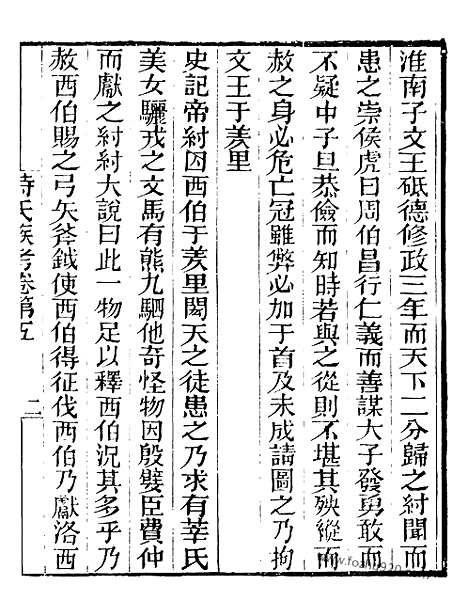 淮南子文王砥德修政三年而天下二分歸之紂聞而
患之崇侯虎曰周伯昌行仁義而善謀大子發勇敢而
不疑中子旦恭儉而知時若與之從則不堪其殃縱而
赦之身必危亡冠雖弊必加于首及未成請圖之乃拘
文王于羑里
史記帝紂囚西伯于羑里閎夭之徒患之乃求有莘氏
美女驪戎之文馬有熊九駟他奇怪物因殷嬖臣費仲
而獻之紂紂大說曰此一物足以釋西伯況其多乎乃
赦西伯賜之弓矢斧鉞使西伯得征伐西伯乃獻洛西
氏族考卷第五
二